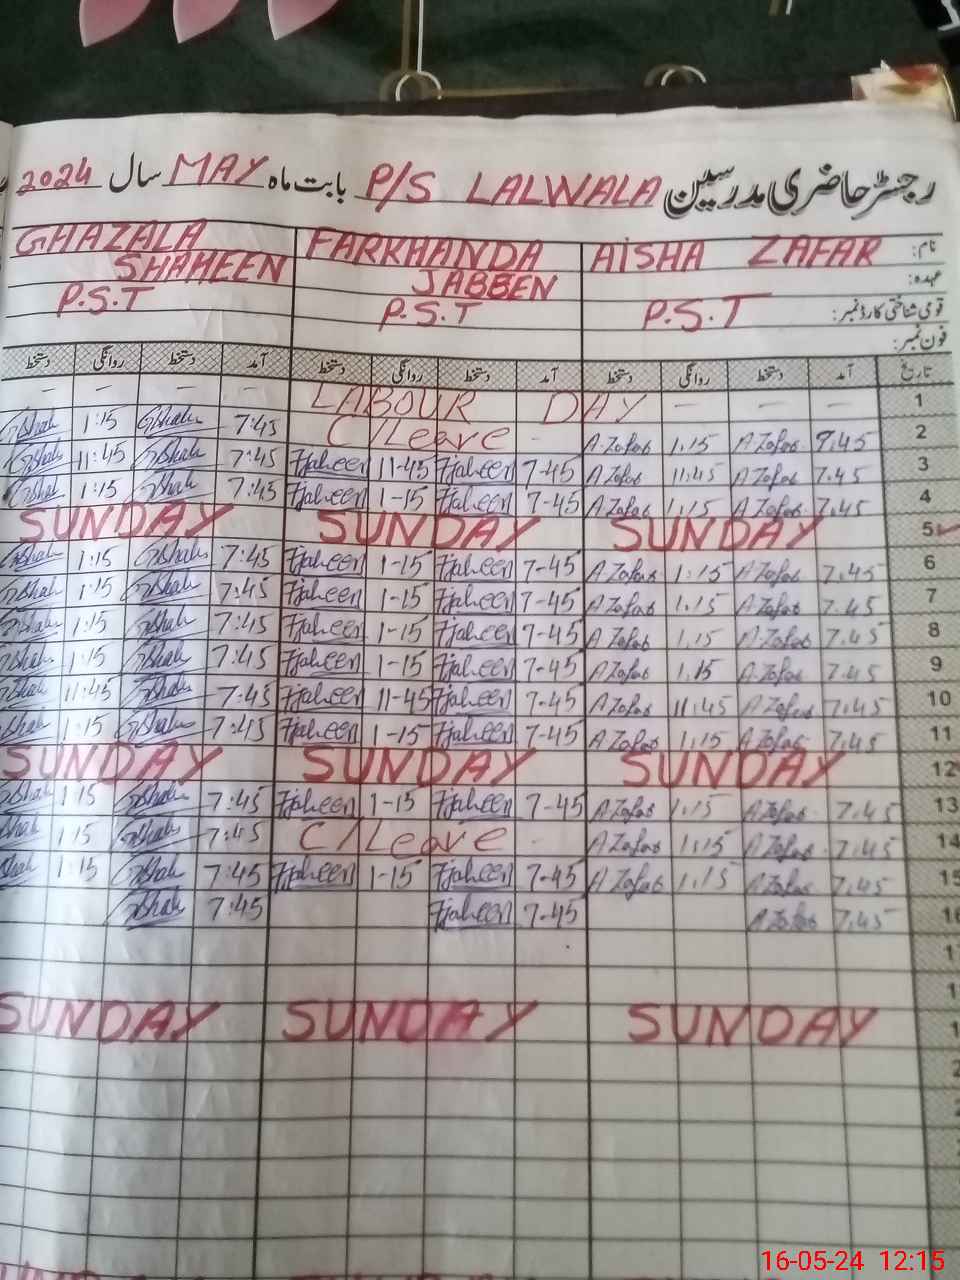 رجسٹر حاضری مدرسین P/S LALWALA بابت ماہ MAY سال 2024
نام: AISHA ZAFAR FARKHANDA GHAZALA
عہدہ: JABBEN SHAHEEN
قومی شناختی کارڈ نمبر: P.S.T P.S.T P.S.T
فون نمبر:
تاریخ آمد دستخط روانگی دستخط آمد دستخط روانگی دستخط آمد دستخط روانگی دستخط
- - - - LABOUR DAY - - - 1
GShah 1:15 GShah 7:45 C/Leave - A Zafar 1.15 A Zafar 7.45 2
GShah 11:45 GShah 7:45 Fjaheen 11-45 Fjaheen 7-45 A Zafar 11.45 A Zafar 7.45 3
GShah 1:15 GShah 7:45 Fjaheen 1-15 Fjaheen 7-45 A Zafar 1.15 A Zafar 7.45 4
SUNDAY SUNDAY SUNDAY 5
GShah 1:15 GShah 7:45 Fjaheen 1-15 Fjaheen 7-45 A Zafar 1:15 A Zafar 7.45 6
GShah 1:15 GShah 7:45 Fjaheen 1-15 Fjaheen 7-45 A Zafar 1.15 A Zafar 7.45 7
GShah 1:15 GShah 7:45 Fjaheen 1-15 Fjaheen 7-45 A Zafar 1.15 A Zafar 7.45 8
GShah 1:15 GShah 7:45 Fjaheen 1-15 Fjaheen 7-45 A Zafar 1.15 A Zafar 7.45 9
GShah 11:45 GShah 7:45 Fjaheen 11-45 Fjaheen 7-45 A Zafar 11.45 A Zafar 7.45 10
GShah 1:15 GShah 7:45 Fjaheen 1-15 Fjaheen 7-45 A Zafar 1.15 A Zafar 7.45 11
SUNDAY SUNDAY SUNDAY 12
GShah 1:15 GShah 7:45 Fjaheen 1-15 Fjaheen 7-45 A Zafar 1.15 A Zafar 7.45 13
GShah 1:15 GShah 7:45 C/Leave - A Zafar 1.15 A Zafar 7.45 14
GShah 1:15 GShah 7:45 Fjaheen 1-15 Fjaheen 7-45 A Zafar 1.15 A Zafar 7.45 15
GShah 7:45 Fjaheen 7-45 A Zafar 7.45 16
SUNDAY SUNDAY SUNDAY
16-05-24 12:15